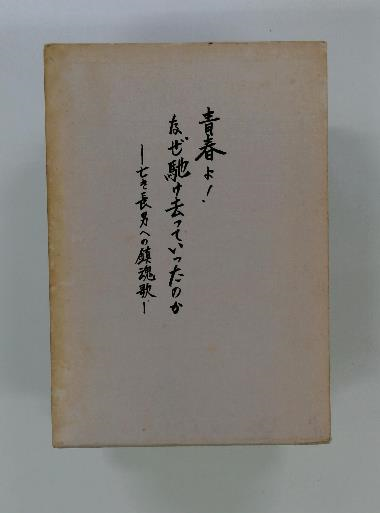 青春よ!
なぜ馳け去っていったのか
―亡き長男への鎮魂歌―